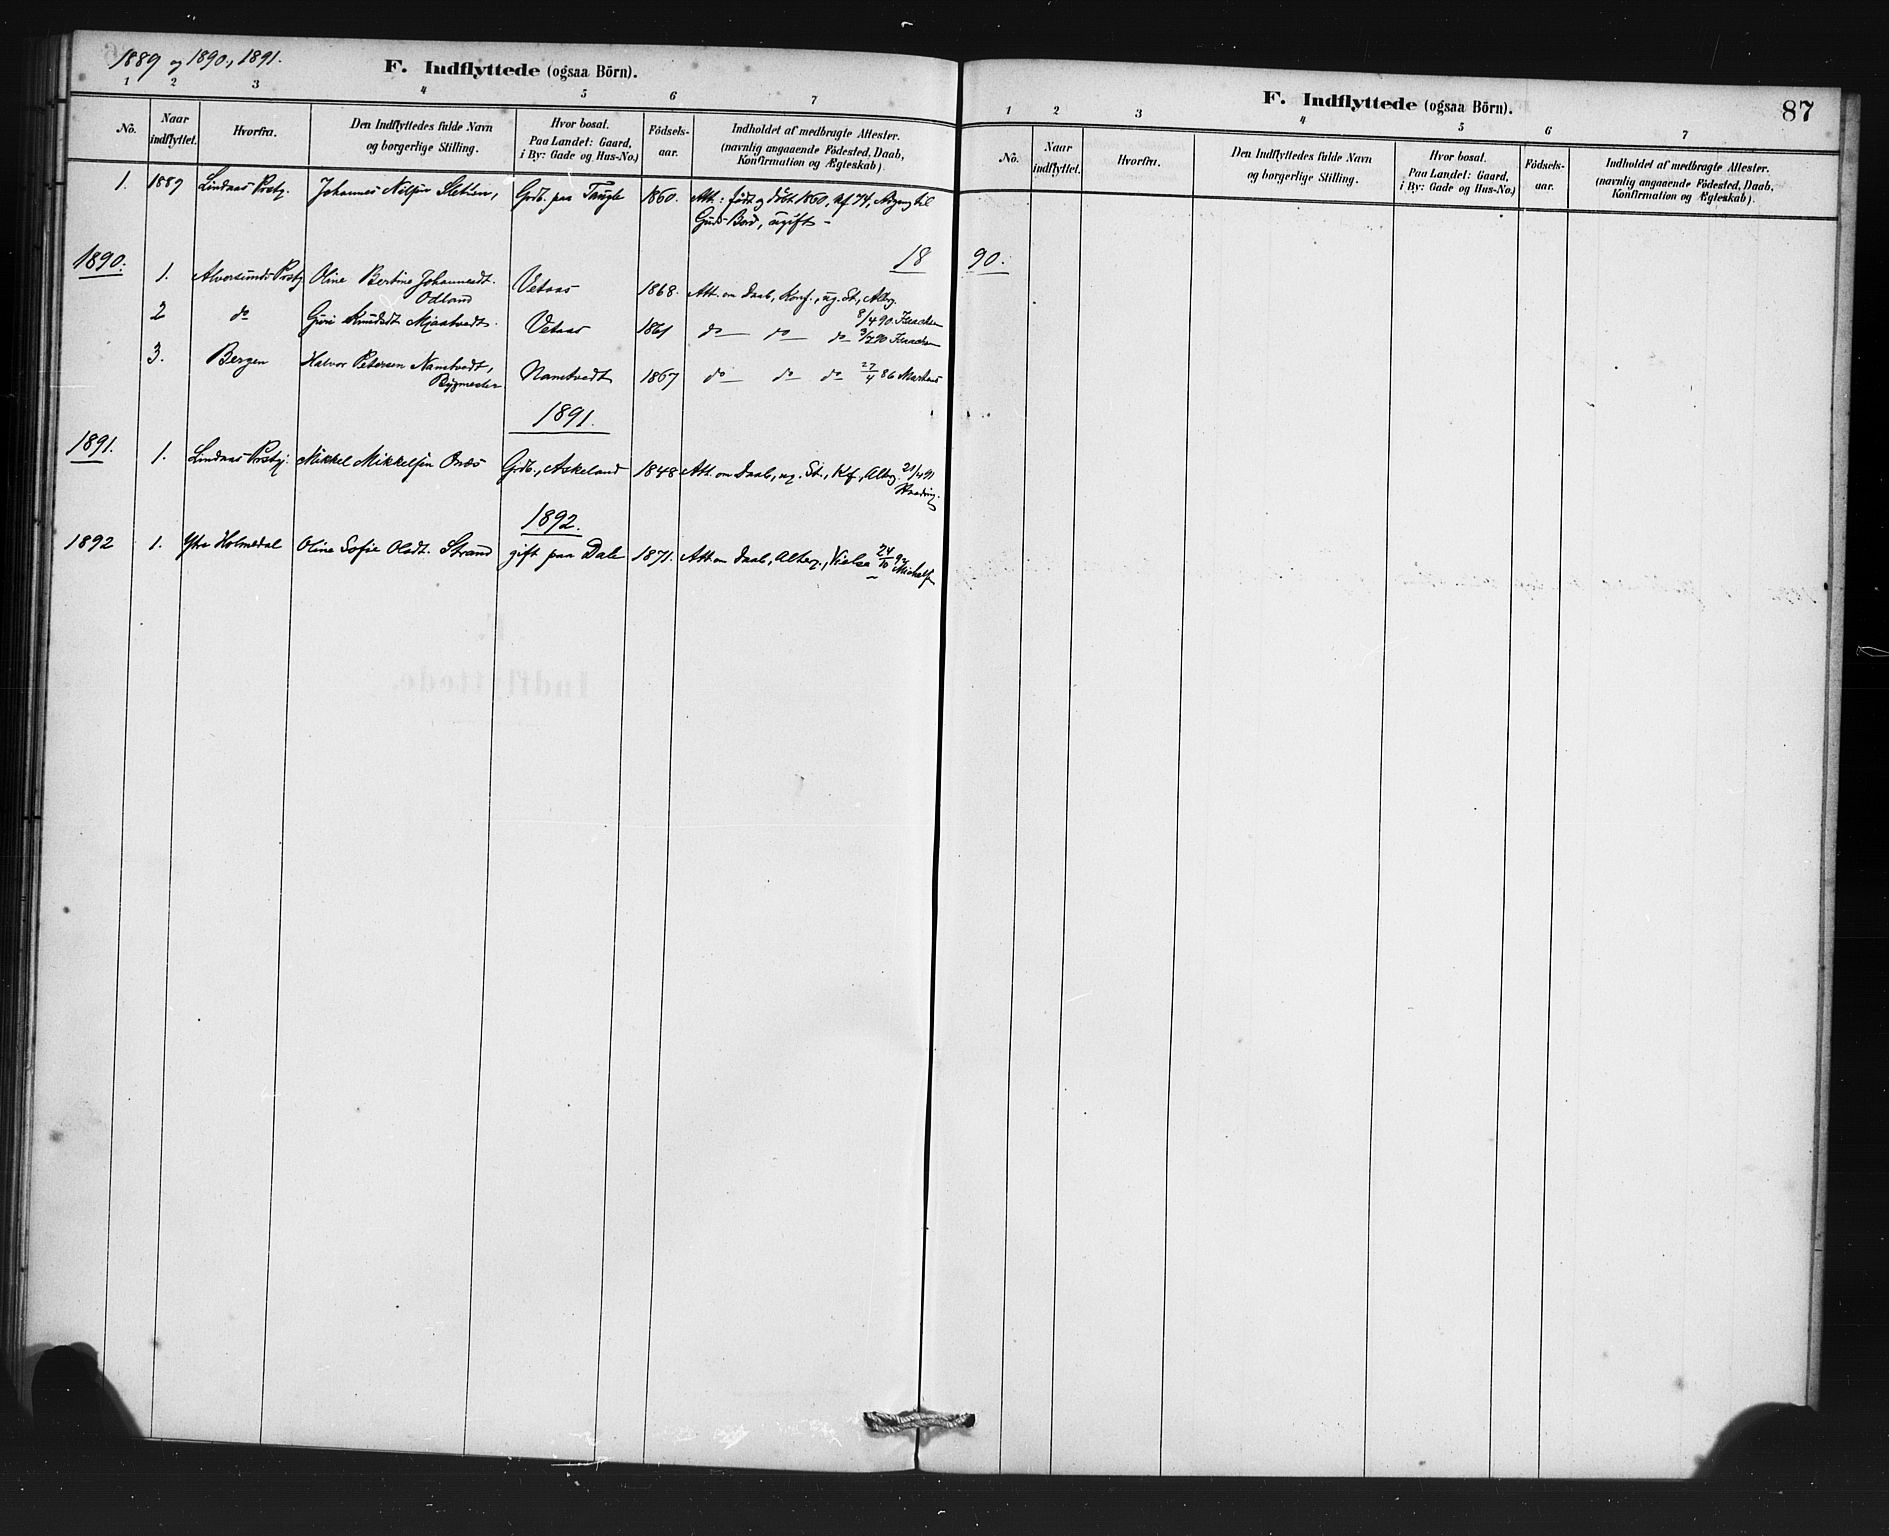 1889 og 1890, 1891.
F. Indflyttede (ogsaa Börn).
1 2 3 4 5 6 7
No.
Naar indflyttet.
Hvorfra.
Den Indflyttedes fulde Navn
og borgerlige Stilling.
Hvor bosat.
Paa Landet: Gaard,
i By: Gade og Hus-No.)
Födsels-
aar.
Indholdet af medbragte Attester.
(navnlig angaaende Födested, Daab,
Konfirmation og Ægteskab).
1. 1889 Lindaas Prstgj. Johannes Nilsen Sletten, Grdb. paa Tangle 1860. Att: født og døbt 1860, kf 74, Adgang til
Guds Bord, ugift –
1890. 18
1. Alversunds Prstgj Oline Bertine Johannesdt. Vetaas 1868. Att. om Daab, Konf., ug. St., Altrg.
Odland 8/4 90 Isachsen
2 do Guri Knudsdt Mjaatvedt. Vetaas 1861 do do do 3/7 90 Isachsen
3. Bergen Halvor Petersen Namtvedt, Namtvedt 1867 do do do 27/4 86 Martens
Bygmester
1891.
1891. 1. Lindaas Prstgj. Mikkel Mikkelsen Onæs Grdb., Askeland 1848 Att. om Daab, ug. St., Kf, Altrg. 21/4 91
1892.
1892 1. Ytre Holmedal Oline Sofie Olsdt. Strand gift paa Dale 1871. Att. om Daab, Altrg., Vielse 24/10 92
F. Indflyttede (ogsaa Börn).
87
1 2 3 4 5 6 7
No.
Naar
indflyttet.
Hvorfra.
Den Indflyttedes fulde Navn
og borgerlige Stilling.
Hvor bosat.
Paa Landet: Gaard,
i By: Gade og Hus-No.)
Födsels-
aar.
Indholdet af medbragte Attester.
(navnlig angaaende Födested, Daab,
Konfirmation og Ægteskab).
90.